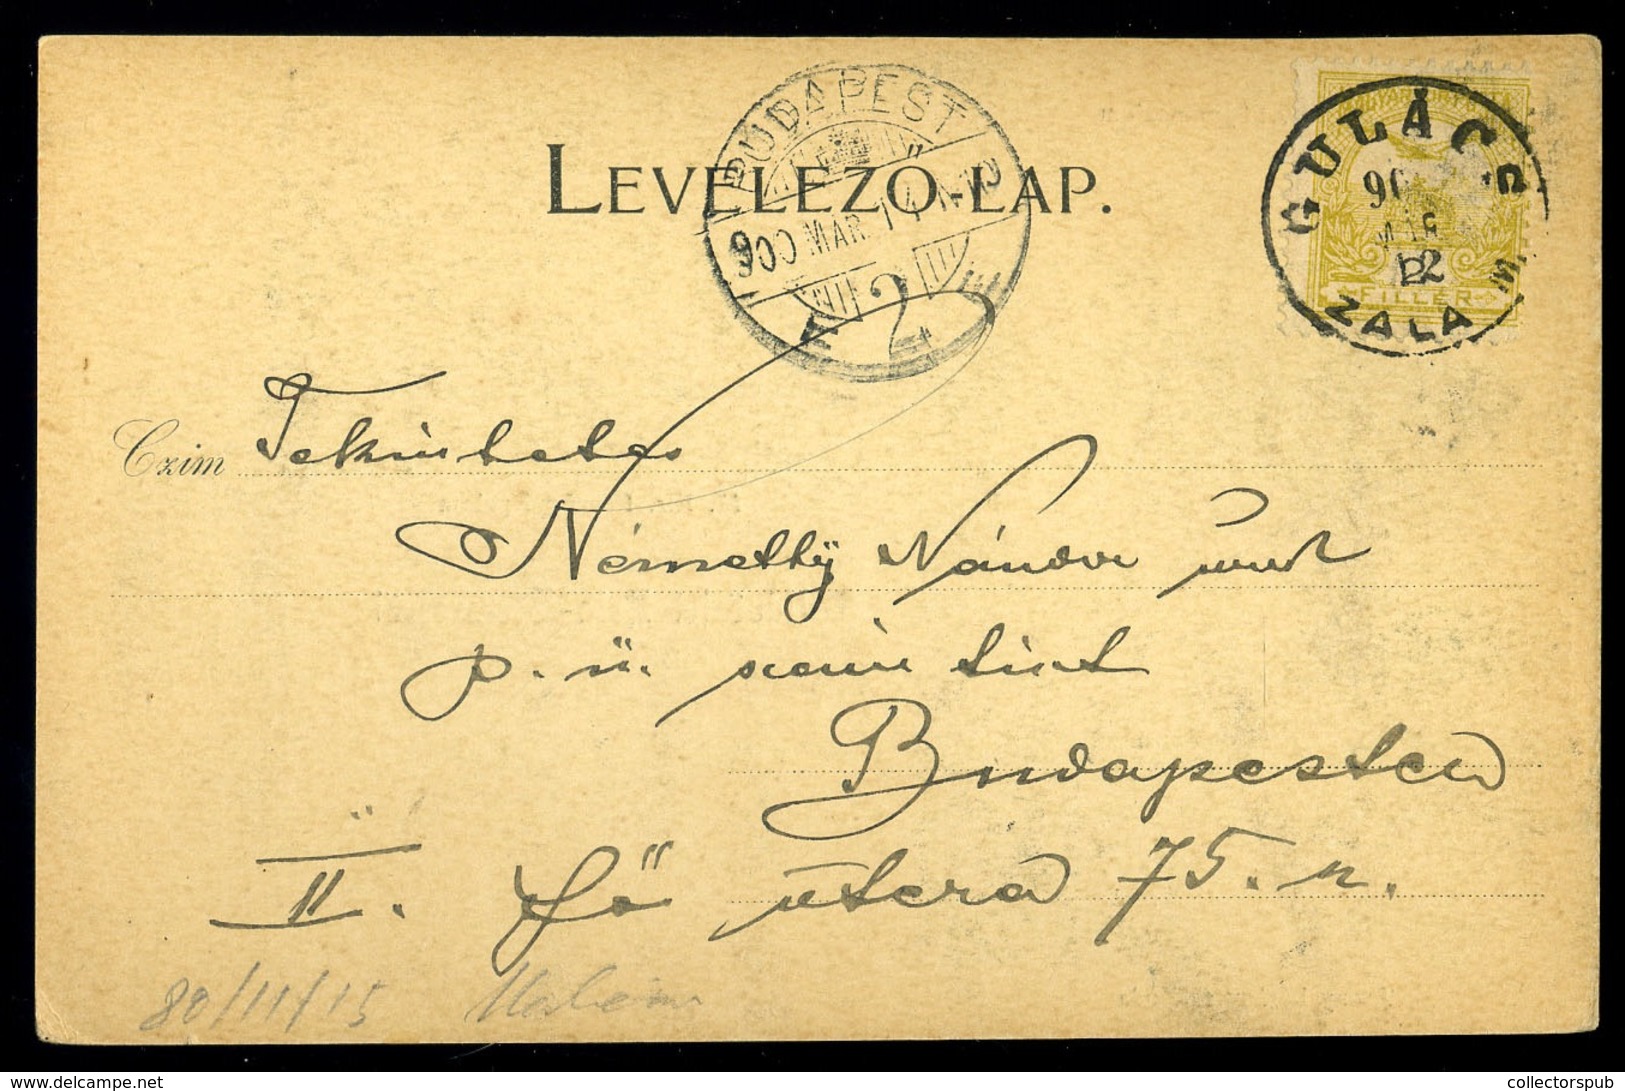 LEVELEZO-LAP.
BUDAPEST
900 MAR. 14 N
2
GULÁCS
90
MAR
12
ZALA M.
FILLÉR
Czim Tekintetes
Némethy Nándor úrnak
p. ü.
Budapesten
II. fő utcza 75. n.
80/11/15
delcampe.net
collectorspub